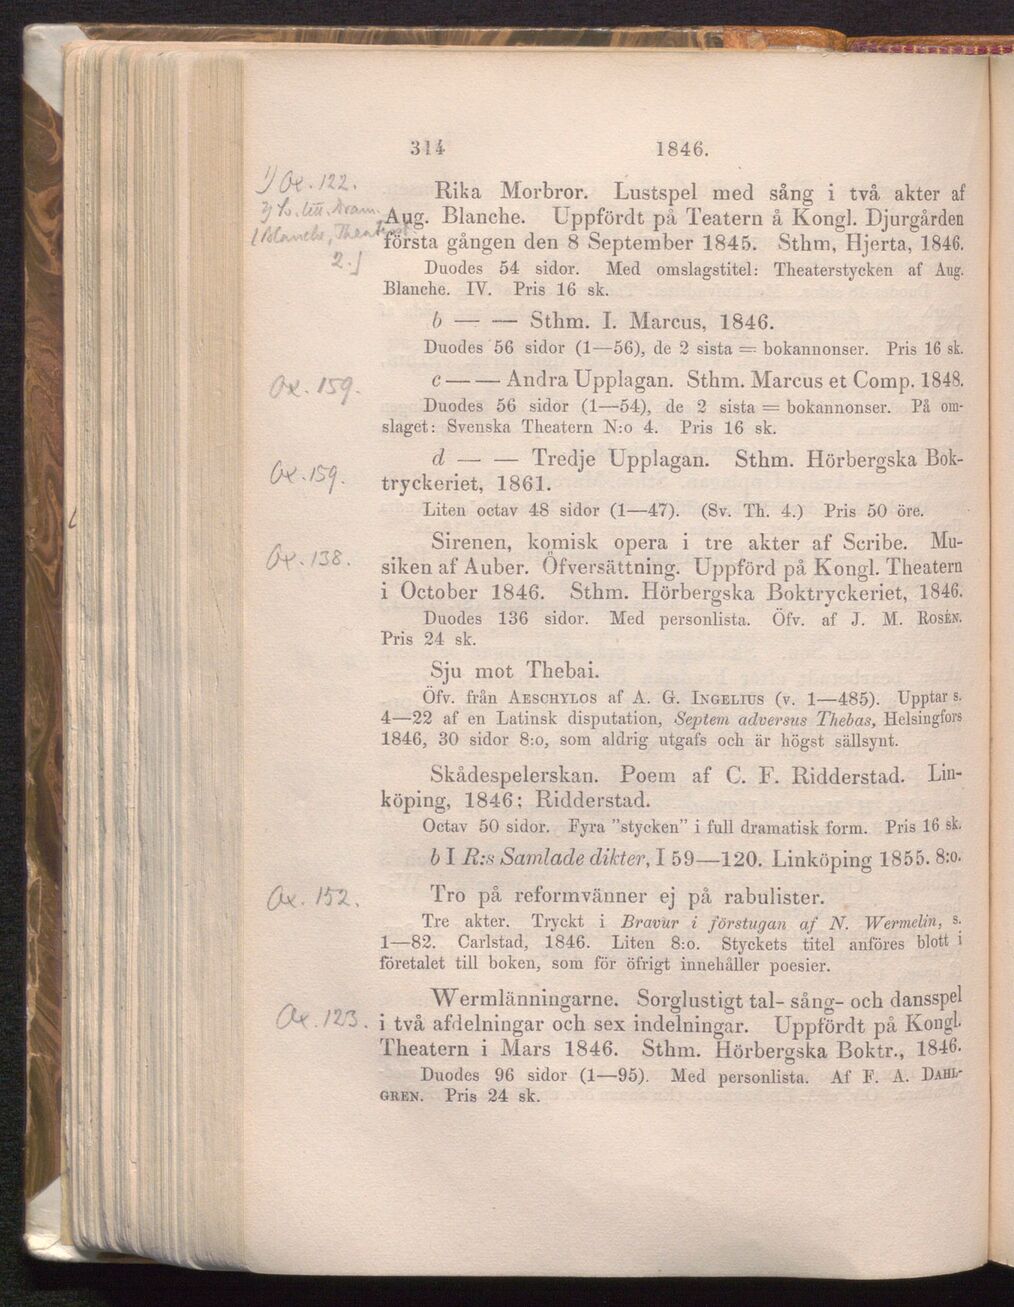 314 1846.
1) Ox. 122.
Rika Morbror. Lustspel med sång i två akter af
Aug. Blanche. Uppfördt på Teatern å Kongl. Djurgården
första gången den 8 September 1845. Sthm, Hjerta, 1846.
2.]
Duodes 54 sidor. Med omslagstitel: Theaterstycken af Aug.
Blanche. IV. Pris 16 sk.
b — — Sthm. I. Marcus, 1846.
Duodes 56 sidor (1—56), de 2 sista = bokannonser. Pris 16 sk.
Ox. 159.
c — — Andra Upplagan. Sthm. Marcus et Comp. 1848.
Duodes 56 sidor (1—54), de 2 sista = bokannonser. På om-
slaget: Svenska Theatern N:o 4. Pris 16 sk.
Ox. 159.
d — — Tredje Upplagan. Sthm. Hörbergska Bok-
tryckeriet, 1861.
Liten octav 48 sidor (1—47). (Sv. Th. 4.) Pris 50 öre.
Ox. 138.
Sirenen, komisk opera i tre akter af Scribe. Mu-
siken af Auber. Öfversättning. Uppförd på Kongl. Theatern
i October 1846. Sthm. Hörbergska Boktryckeriet, 1846.
Duodes 136 sidor. Med personlista. Öfv. af J. M. Rosén.
Pris 24 sk.
Sju mot Thebai.
Öfv. från Aeschylos af A. G. Ingelius (v. 1—485). Upptar s.
4—22 af en Latinsk disputation, Septem adversus Thebas, Helsingfors
1846, 30 sidor 8:o, som aldrig utgafs och är högst sällsynt.
Skådespelerskan. Poem af C. F. Ridderstad. Lin-
köping, 1846; Ridderstad.
Octav 50 sidor. Fyra "stycken" i full dramatisk form. Pris 16 sk.
b I R:s Samlade dikter, I 59—120. Linköping 1855. 8:o.
Ox. 152.
Tro på reformvänner ej på rabulister.
Tre akter. Tryckt i Bravur i förstugan af N. Wermelin, s.
1—82. Carlstad, 1846. Liten 8:o. Styckets titel anföres blott i
företalet till boken, som för öfrigt innehåller poesier.
Ox. 123.
Wermlänningarne. Sorglustigt tal- sång- och dansspel
i två afdelningar och sex indelningar. Uppfördt på Kongl.
Theatern i Mars 1846. Sthm. Hörbergska Boktr., 1846.
Duodes 96 sidor (1—95). Med personlista. Af F. A. Dahl-
gren. Pris 24 sk.